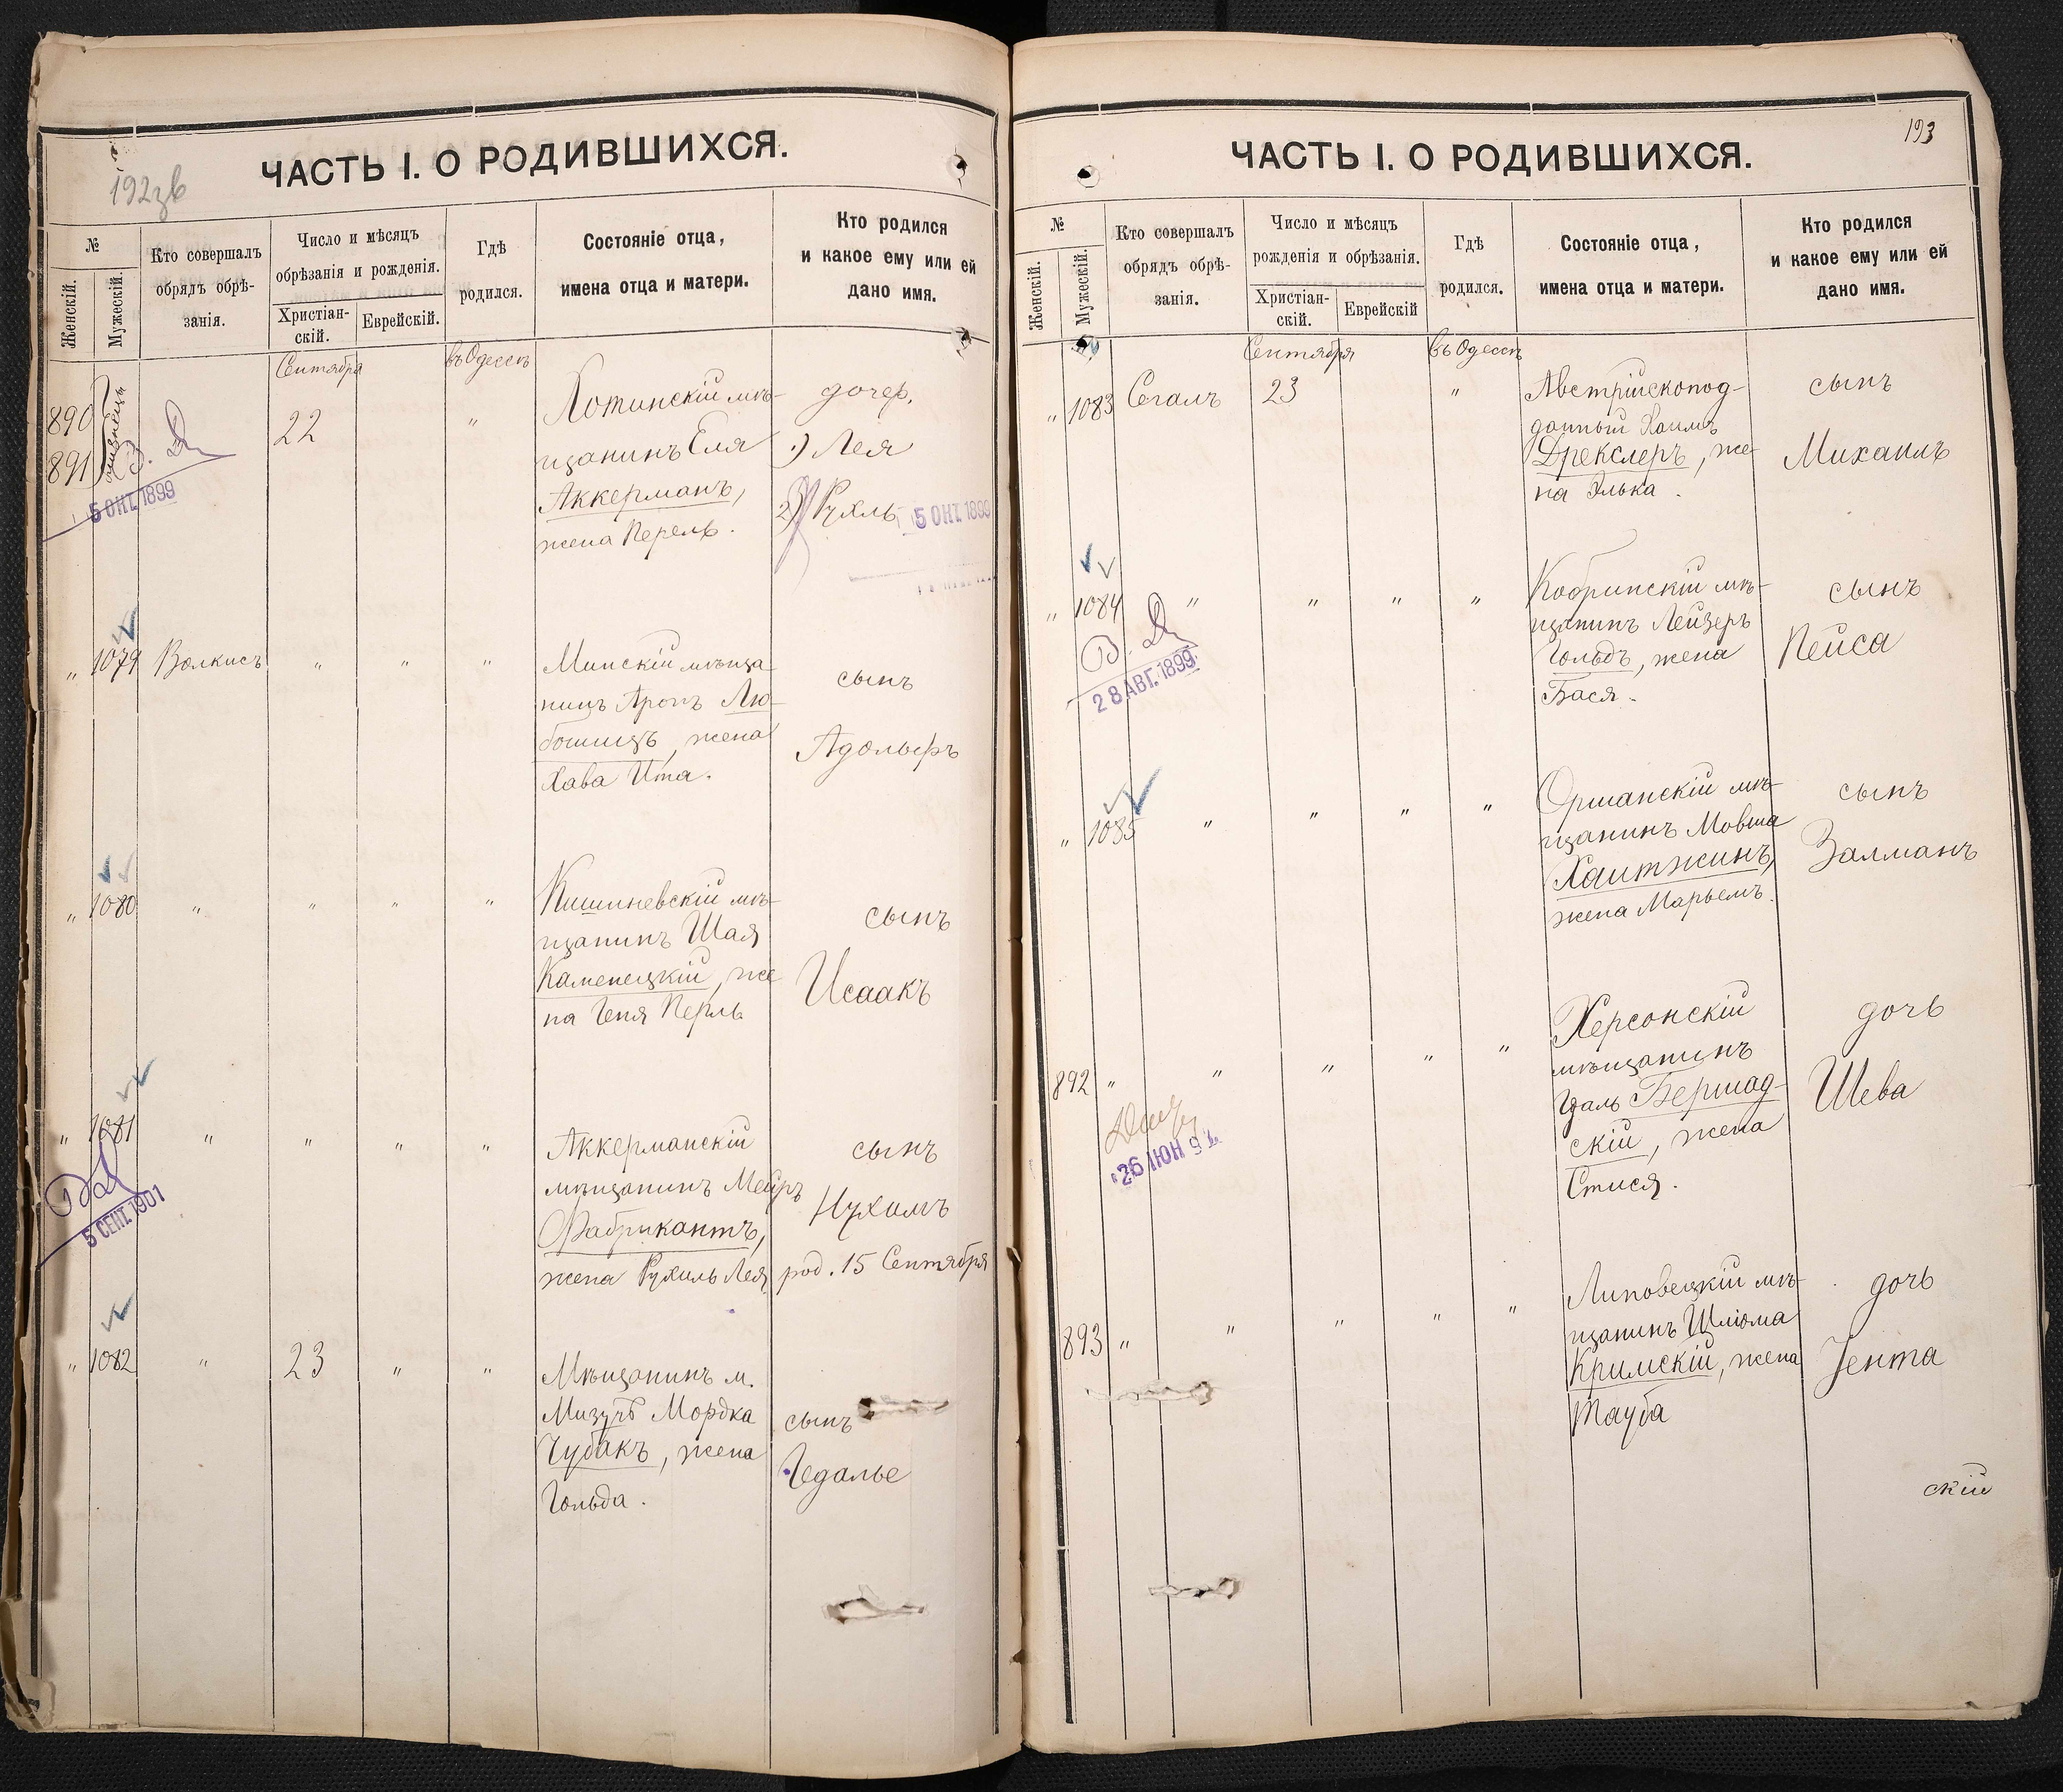 192 зв
ЧАСТЬ I. О РОДИВШИХСЯ.
№
Женскій.
Мужескій.
Кто совершалъ
обрядъ обрѣ-
занія.
Число и мѣсяцъ
обрѣзанія и рожденія.
Христіан-
скій.
Еврейскій.
Гдѣ
родился.
Состояніе отца,
имена отца и матери.
Кто родился
и какое ему или ей
дано имя.
Сентября
въ Одессѣ
890
891
близнецы
22
"
Хотинскій мѣ-
щанинъ Еля
Аккерманъ,
жена Перель.
дочер.
1) Лея
2) Рухль
5 ОКТ. 1899
5 ОКТ. 1899
" 1079 Волкисъ " " "
Минскій мѣща
нинъ Аронъ Лю-
бошицъ, жена
Хава Ита.
сынъ
Адольфъ
" 1080 " " " "
Кишиневскій мѣ-
щанинъ Шая
Каменецкій, же
на Геня Перль
сынъ
Исаакъ
" 1081 " " " "
Аккерманскій
мѣщанинъ Меіръ
Фабрикантъ,
жена Рухиль Лея
сынъ
Нухимъ
род. 15 Сентября
5 СЕНТ. 1901
" 1082 " 23 " "
Мѣщанинъ м.
Мизучъ Мордка
Чубакъ, жена
Гольда.
сынъ
Гедалье
193
ЧАСТЬ I. О РОДИВШИХСЯ.
№
Женскій.
Мужескій.
Кто совершалъ
обрядъ обрѣ-
занія.
Число и мѣсяцъ
рожденія и обрѣзанія.
Христіан-
скій.
Еврейскій
Гдѣ
родился.
Состояніе отца,
имена отца и матери.
Кто родился
и какое ему или ей
дано имя.
Сентября
въ Одессѣ
" 1083 Сегалъ 23 "
Австрійскопод-
данный Хаимъ
Дрекслеръ, же-
на Элька.
сынъ
Михаилъ
" 1084 " " " "
Кобринскій мѣ-
щанинъ Лейзеръ
Гольдъ, жена
Бася.
сынъ
Пейса
28 АВГ. 1899
" 1085 " " " "
Оршанскій мѣ-
щанинъ Мовша
Хаитжинъ,
жена Марьемъ.
сынъ
Залманъ
892 " " " " "
Херсонскій
мѣщанинъ
Удаль Бершад-
скій, жена
Стися.
дочь
Шева
26 ІЮН
893 " " " " "
Липовецкій мѣ-
щанинъ Шліома
Кримскій, жена
Тауба
дочь
Јента
скій